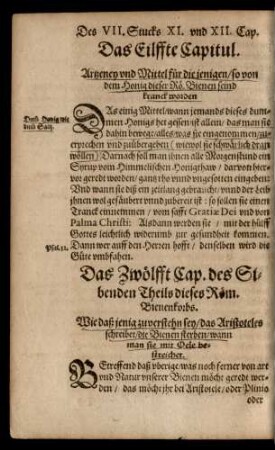 Des VII. Stucks XI. vnd XII. Cap.
Das Eilffte Capitul.
Artzeney vnd Mittel für die jenigen / so von
dem Honig dieser Rö. Bienen seind
kranck worden
DAs einig Mittel / wann jemands dieses dummen
Honigs hat gessen ist allein / das man sie
dahin bewege / alles was sie eingenommen / zu
erprechen vnd zu übergeben (wiewol sie schwärlich dran
wöllen) Darnach soll man ihnen alle Morgenstund ein
Syrup vom Himmelischen Honigthaw / darvon hervor
geredt worden / gantz rho vnd vngesotten eingeben:
Vnd wann sie diß ein zeitlang gebraucht / vnnd der Leib
ihnen wol gesäubert vnnd zubereit ist: so sollen sie einen
Tranck einnemmen / vom safft Gratiæ Dei vnd von
Palma Christi: Alsdann werden sie / mit der hülff
Gottes leichtlich widerumb zur gesundheit kommen.
Psal.32. Dann wer auff den Herren hofft / denselben wird die
Güte vmbfahen.
Das Zwölffte Cap. des Sibenden
Theils dieses Röm.
Bienenkorbs.
Wie daß jenig zu verstehn sey / das Aristoteles
schreibet / die Bienen sterben / wann
man sie mit Oele bestreichet.
BEtreffend daß vberige was noch ferner von art
vnd Natur vnserer Bienen möcht geredt werden
/ das möcht jhr bei Aristotele / oder Plinio
oder